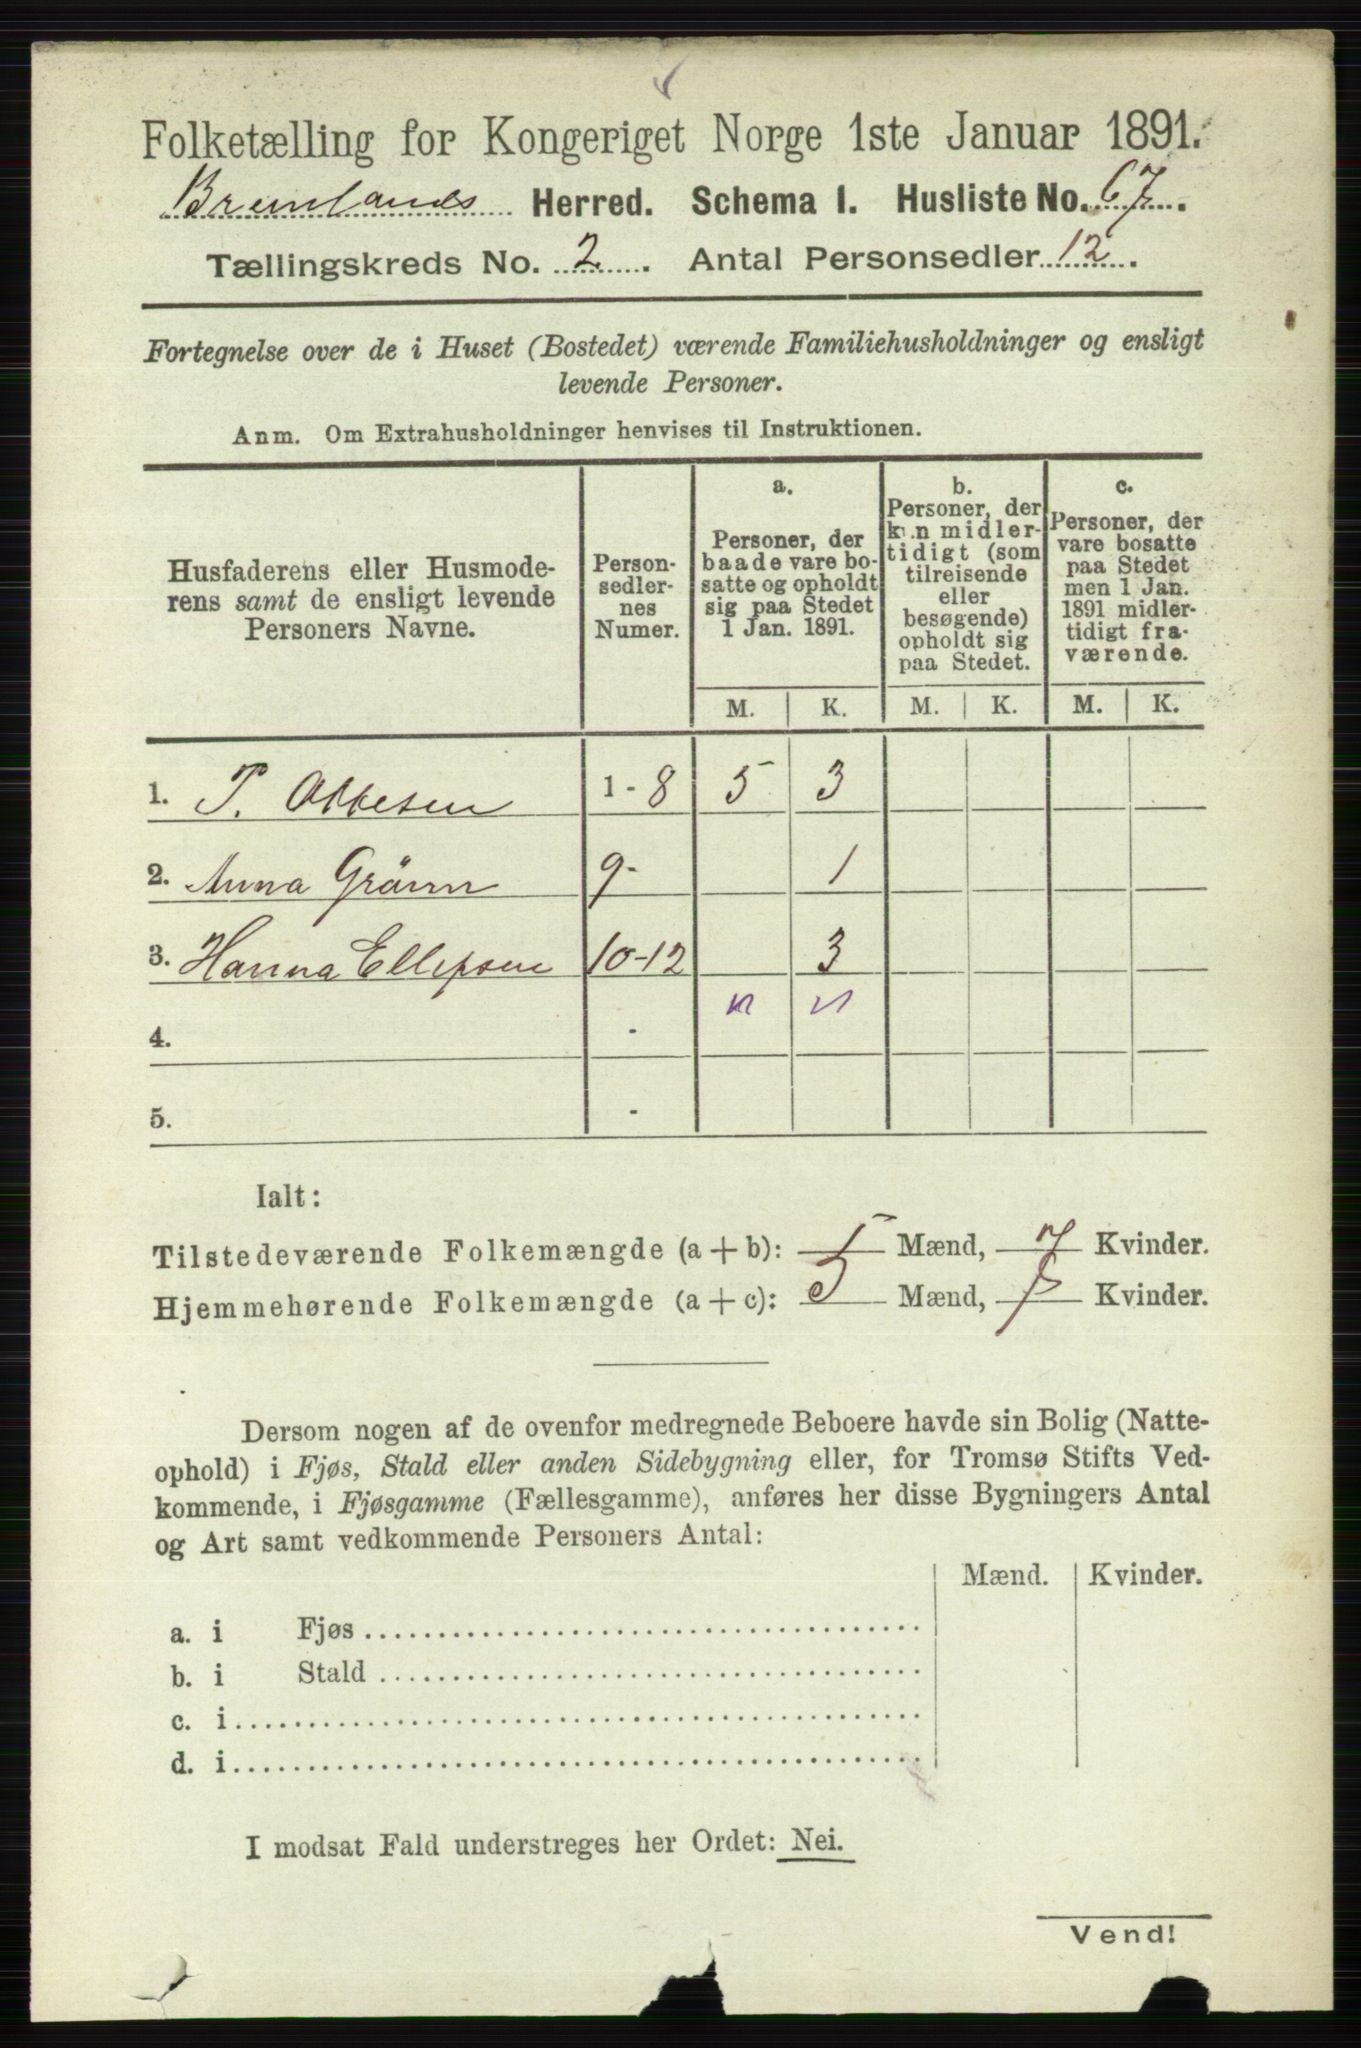 Folketælling for Kongeriget Norge 1ste Januar 1891.
Brunlands Herred. Schema I. Husliste No. 67.
Tællingskreds No. 2. Antal Personsedler 12.
Fortegnelse over de i Huset (Bostedet) værende Familiehusholdninger og ensligt
levende Personer.
Anm. Om Extrahusholdninger henvises til Instruktionen.
Husfaderens eller Husmode-
rens samt de ensligt levende
Personers Navne.
Person-
sedler-
nes
Numer.
a.
Personer, der
baade vare bo-
satte og opholdt
sig paa Stedet
1 Jan. 1891.
b.
Personer, der
kun midler-
tidigt (som
tilreisende
eller
besøgende)
opholdt sig
paa Stedet.
c.
Personer, der
vare bosatte
paa Stedet
men 1 Jan.
1891 midler-
tidigt fra-
værende.
M. K. M. K. M. K.
1. P. Abbesen 1-8 5 3
2. Anna Grönn 9- 1
3. Hanna Ellefsen 10-12 3
4. -
5. -
Ialt:
Tilstedeværende Folkemængde (a+b): 5 Mænd, 7 Kvinder.
Hjemmehørende Folkemængde (a+c): 5 Mænd, 7 Kvinder.
Dersom nogen af de ovenfor medregnede Beboere havde sin Bolig (Natte-
ophold) i Fjøs, Stald eller anden Sidebygning eller, for Tromsø Stifts Ved-
kommende, i Fjøsgamme (Fællesgamme), anføres her disse Bygningers Antal
og Art samt vedkommende Personers Antal:
Mænd. Kvinder.
a. i Fjøs
b. i Stald
c. i
d. i
I modsat Fald understreges her Ordet: Nei.
Vend!